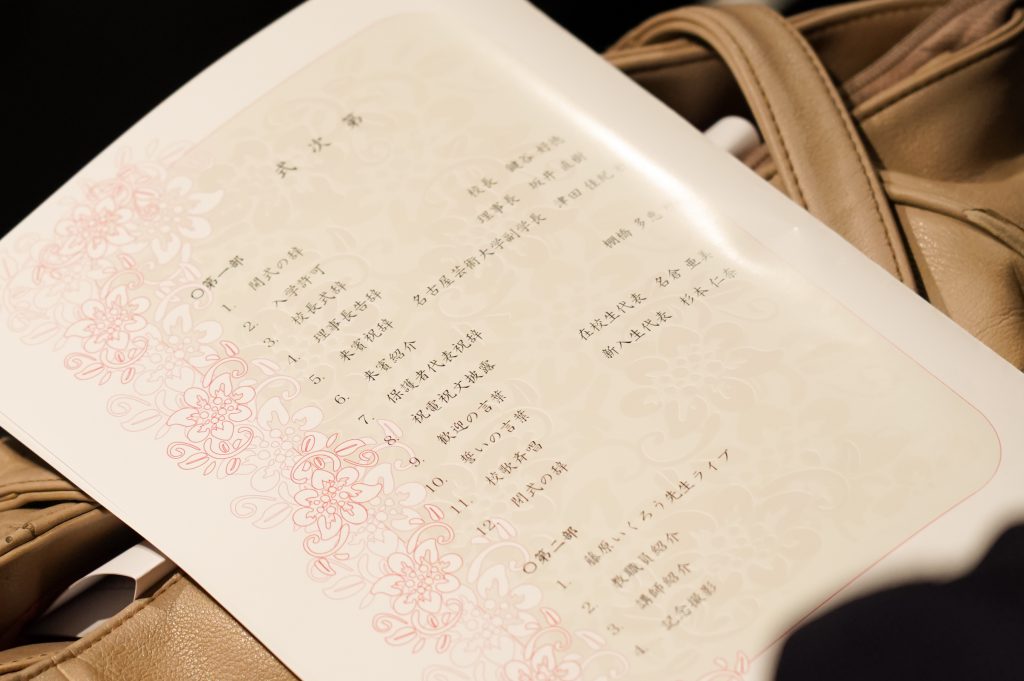 式次第
○第一部
1. 開式の辞
2. 入学許可
3. 校長式辞 校長 鍵谷
4. 理事長告辞 理事長 坂井
5. 来賓祝辞 名古屋芸術大学副学長 津田 佳紀
6. 来賓紹介
7. 保護者代表祝辞 棚橋 多恵
8. 祝電祝文披露
9. 歓迎の言葉 在校生代表 名倉 亜美
10. 誓いの言葉 新入生代表 杉本
11. 校歌斉唱
12. 閉式の辞
○第二部
1. 藤原いくろう先生ライブ
2. 教職員紹介
3. 講師紹介
4. 記念撮影